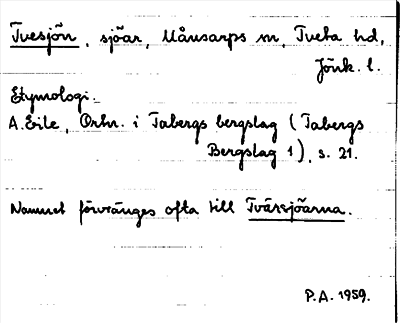 Tvesjön, sjöar, Månsarps sn, Tveta hd,
Jönk. l.
Etymologi.
A. Eile, Ortn. i Tabergs bergslag (Tabergs
Bergslag 1), s. 21.
Namnet förvränges ofta till Tväresjöarna.
P.A. 1959.